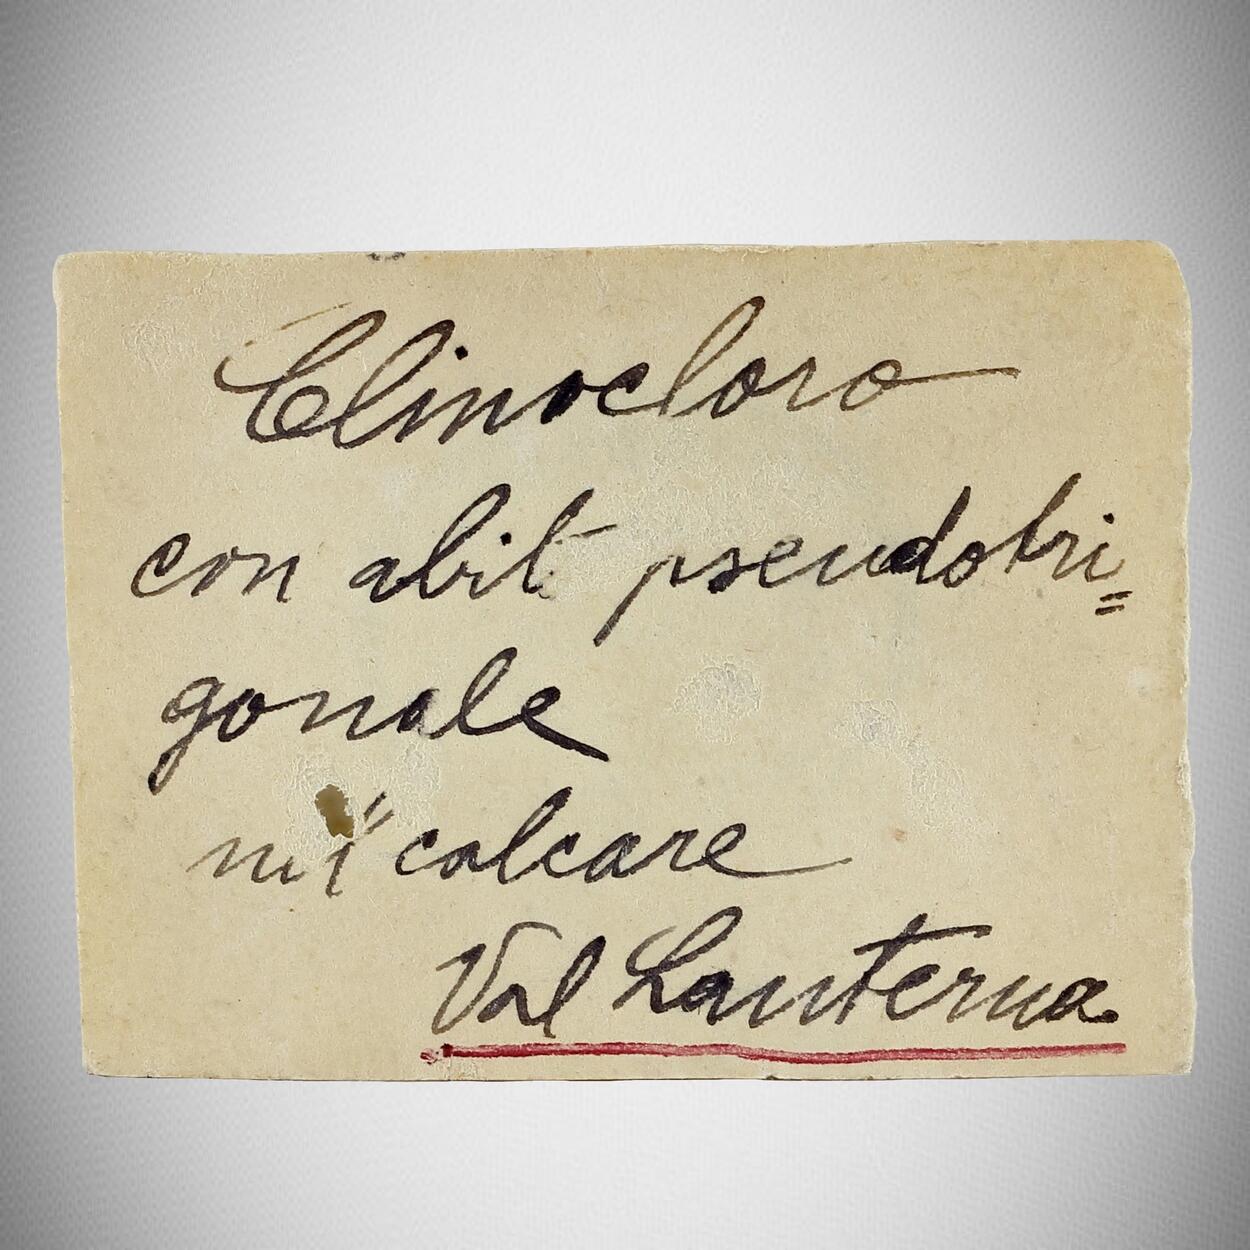 Clinocloro
con abit pseudotri=
gonale
nel calcare
Val Lanterna